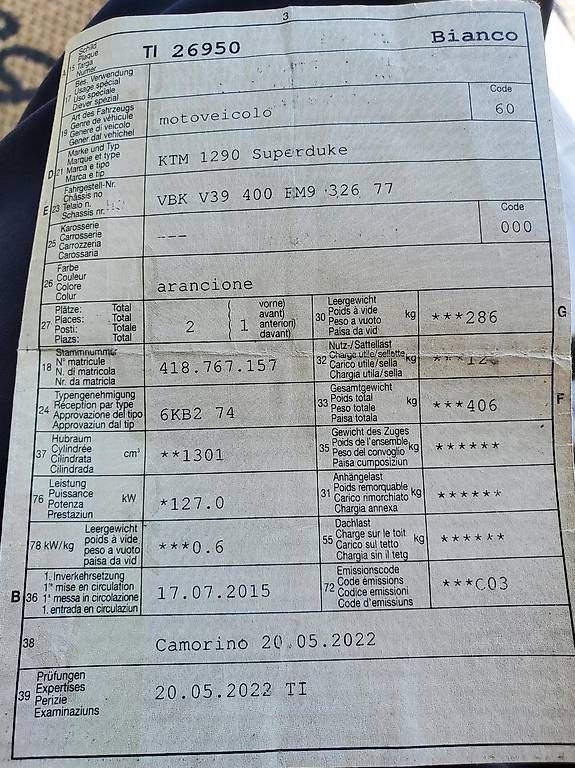 3
Schild
Plaque
Targa
Numer
15
TI 26950
Bianco
17
Bes. Verwendung
Usage spécial
Uso speciale
Diever spezial
19
Art des Fahrzeugs
Genre de véhicule
Genere di veicolo
Gener dal vehichel
motoveicolo
Code
60
D 21
Marke und Typ
Marque et type
Marca e tipo
Marca e tip
KTM 1290 Superduke
E 23
Fahrgestell-Nr.
Châssis no
Telaio n.
Schassis nr.
VBK V39 400 EM9 326 77
25
Karosserie
Carrosserie
Carrozzeria
Carossaria
---
Code
000
26
Farbe
Couleur
Colore
Colur
arancione
27
Plätze: Total
Places: Total
Posti: Totale
Plazs: Total
2
vorne)
avant)
anteriori)
davant)
1
30
Leergewicht
Poids à vide
Peso a vuoto
Paisa da vid
kg
***286
G
18
Stammnummer
N° matricule
N. di matricola
Nr. da matricla
418.767.157
32
Nutz-/Sattellast
Charge utile/sellette
Carico utile/sella
Chargia utila/sella
kg
24
Typengenehmigung
Réception par type
Approvazione del tipo
Approvaziun dal tip
6KB2 74
33
Gesamtgewicht
Poids total
Peso totale
Paisa totala
kg
***406
F
37
Hubraum
Cylindrée
Cilindrata
Cilindrada
cm³
**1301
35
Gewicht des Zuges
Poids de l'ensemble
Peso del convoglio
Paisa cumposiziun
kg
******
76
Leistung
Puissance
Potenza
Prestaziun
kW
*127.0
31
Anhängelast
Poids remorquable
Carico rimorchiato
Chargia annexa
kg
******
78 kW/kg
Leergewicht
poids à vide
peso a vuoto
paisa da vid
***0.6
55
Dachlast
Charge sur le toit
Carico sul tetto
Chargia sin il tetg
kg
******
B 36
1. Inverkehrsetzung
1re mise en circulation
1a messa in circolazione
1. entrada en circulaziun
17.07.2015
72
Emissionscode
Code émissions
Codice emissioni
Code d'emissiuns
***C03
38
Camorino 20.05.2022
39
Prüfungen
Expertises
Perizie
Examinaziuns
20.05.2022 TI